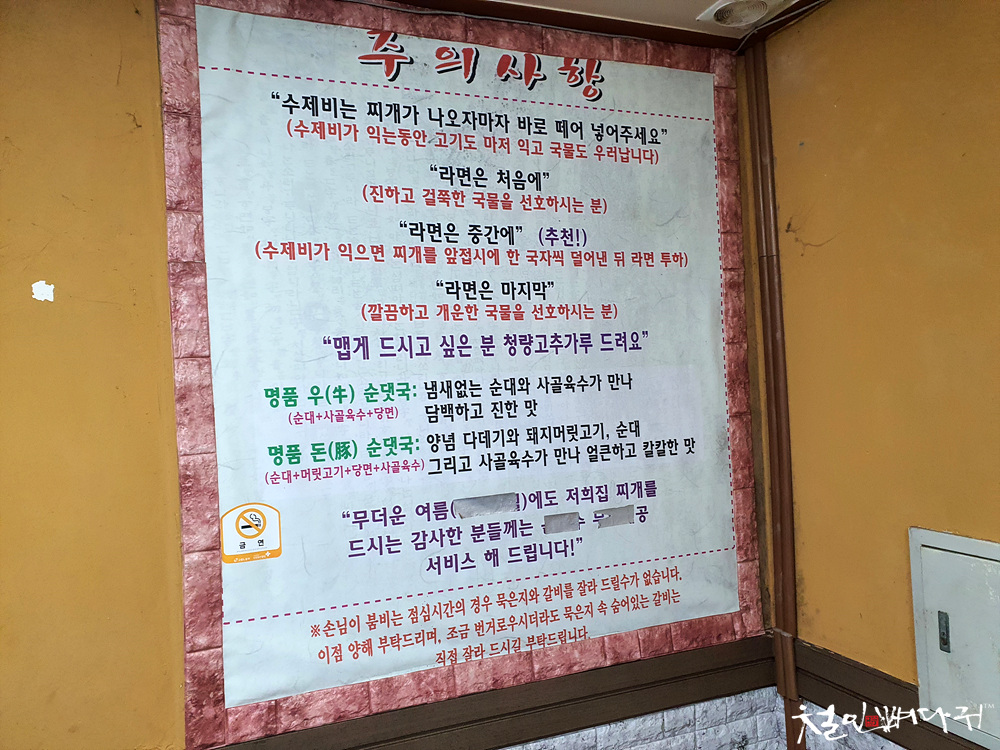 주의사항
“수제비는 찌개가 나오자마자 바로 떼어 넣어주세요”
(수제비가 익는동안 고기도 마저 익고 국물도 우러납니다)
“라면은 처음에”
(진하고 걸쭉한 국물을 선호하시는 분)
“라면은 중간에” (추천!)
(수제비가 익으면 찌개를 앞접시에 한 국자씩 덜어낸 뒤 라면 투하)
“라면은 마지막”
(깔끔하고 개운한 국물을 선호하시는 분)
“맵게 드시고 싶은 분 청량고추가루 드려요”
명품 우(牛) 순댓국: 냄새없는 순대와 사골육수가 만나
(순대+사골육수+당면) 담백하고 진한 맛
명품 돈(豚) 순댓국: 양념 다데기와 돼지머릿고기, 순대
(순대+머릿고기+당면+사골육수) 그리고 사골육수가 만나 얼큰하고 칼칼한 맛
“무더운 여름( )에도 저희집 찌개를
드시는 감사한 분들께는 공
서비스 해 드립니다!”
금연
※손님이 붐비는 점심시간의 경우 묵은지와 갈비를 잘라 드릴수가 없습니다.
이점 양해 부탁드리며, 조금 번거로우시더라도 묵은지 속 숨어있는 갈비는
직접 잘라 드시길 부탁드립니다.
철민뼈다귀